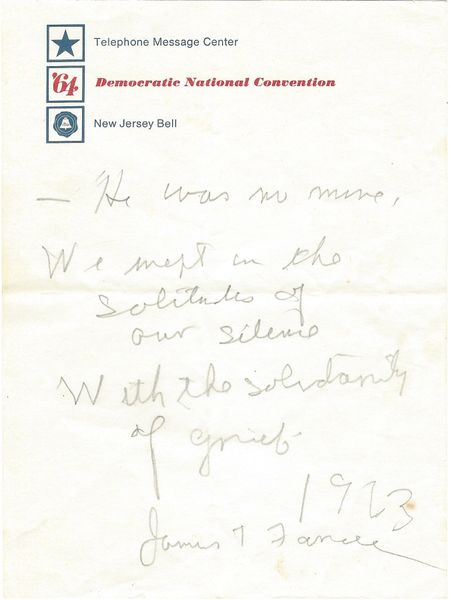 Telephone Message Center
'64 Democratic National Convention
New Jersey Bell
— He was no more,
We wept in the
solitudes of
our silence
With the solidarity
of grief.
19
James T